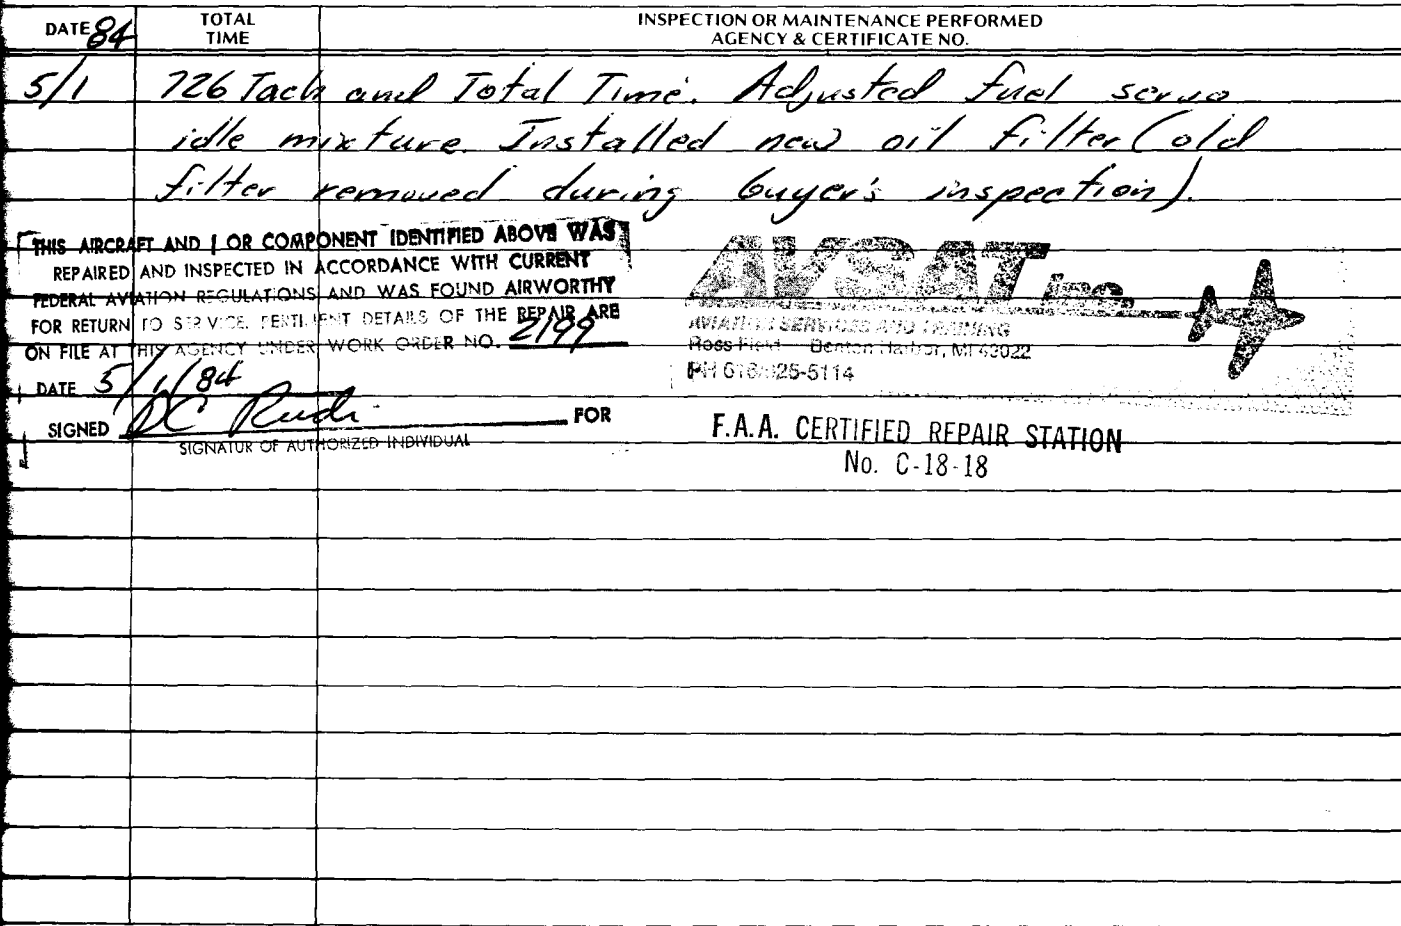 DATE 84 TOTAL TIME INSPECTION OR MAINTENANCE PERFORMED
AGENCY & CERTIFICATE NO.
5/1 726 Tach and Total Time. Adjusted fuel servo
idle mixture. Installed new oil filter (old
filter removed during buyer's inspection).
THIS AIRCRAFT AND / OR COMPONENT IDENTIFIED ABOVE WAS
REPAIRED AND INSPECTED IN ACCORDANCE WITH CURRENT
FEDERAL AVIATION REGULATIONS AND WAS FOUND AIRWORTHY
FOR RETURN TO SERVICE. PERTINENT DETAILS OF THE REPAIR ARE
ON FILE AT THIS AGENCY UNDER WORK ORDER NO. 2199
DATE 5/1/84
SIGNED DC FOR
SIGNATUR OF AUTHORIZED INDIVIDUAL
AVSAT inc.
AVIATION SERVICES AND TRAINING
Ross Field Benton Harbor, MI 49022
PH 616 925-5114
F.A.A. CERTIFIED REPAIR STATION
No. C-18-18